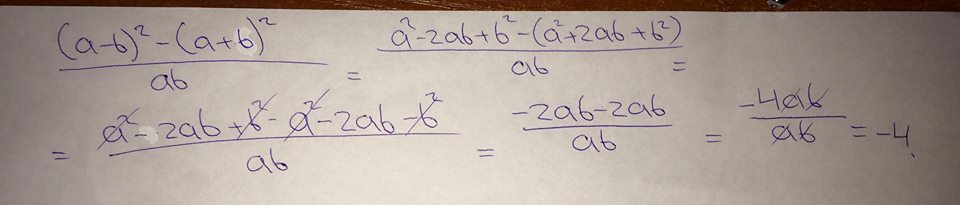 (a-b)² - (a+b)² / ab = a² - 2ab + b² - (a² + 2ab + b²) / ab =
= a² - 2ab + b² - a² - 2ab - b² / ab = -2ab - 2ab / ab = -4ab / ab = -4.